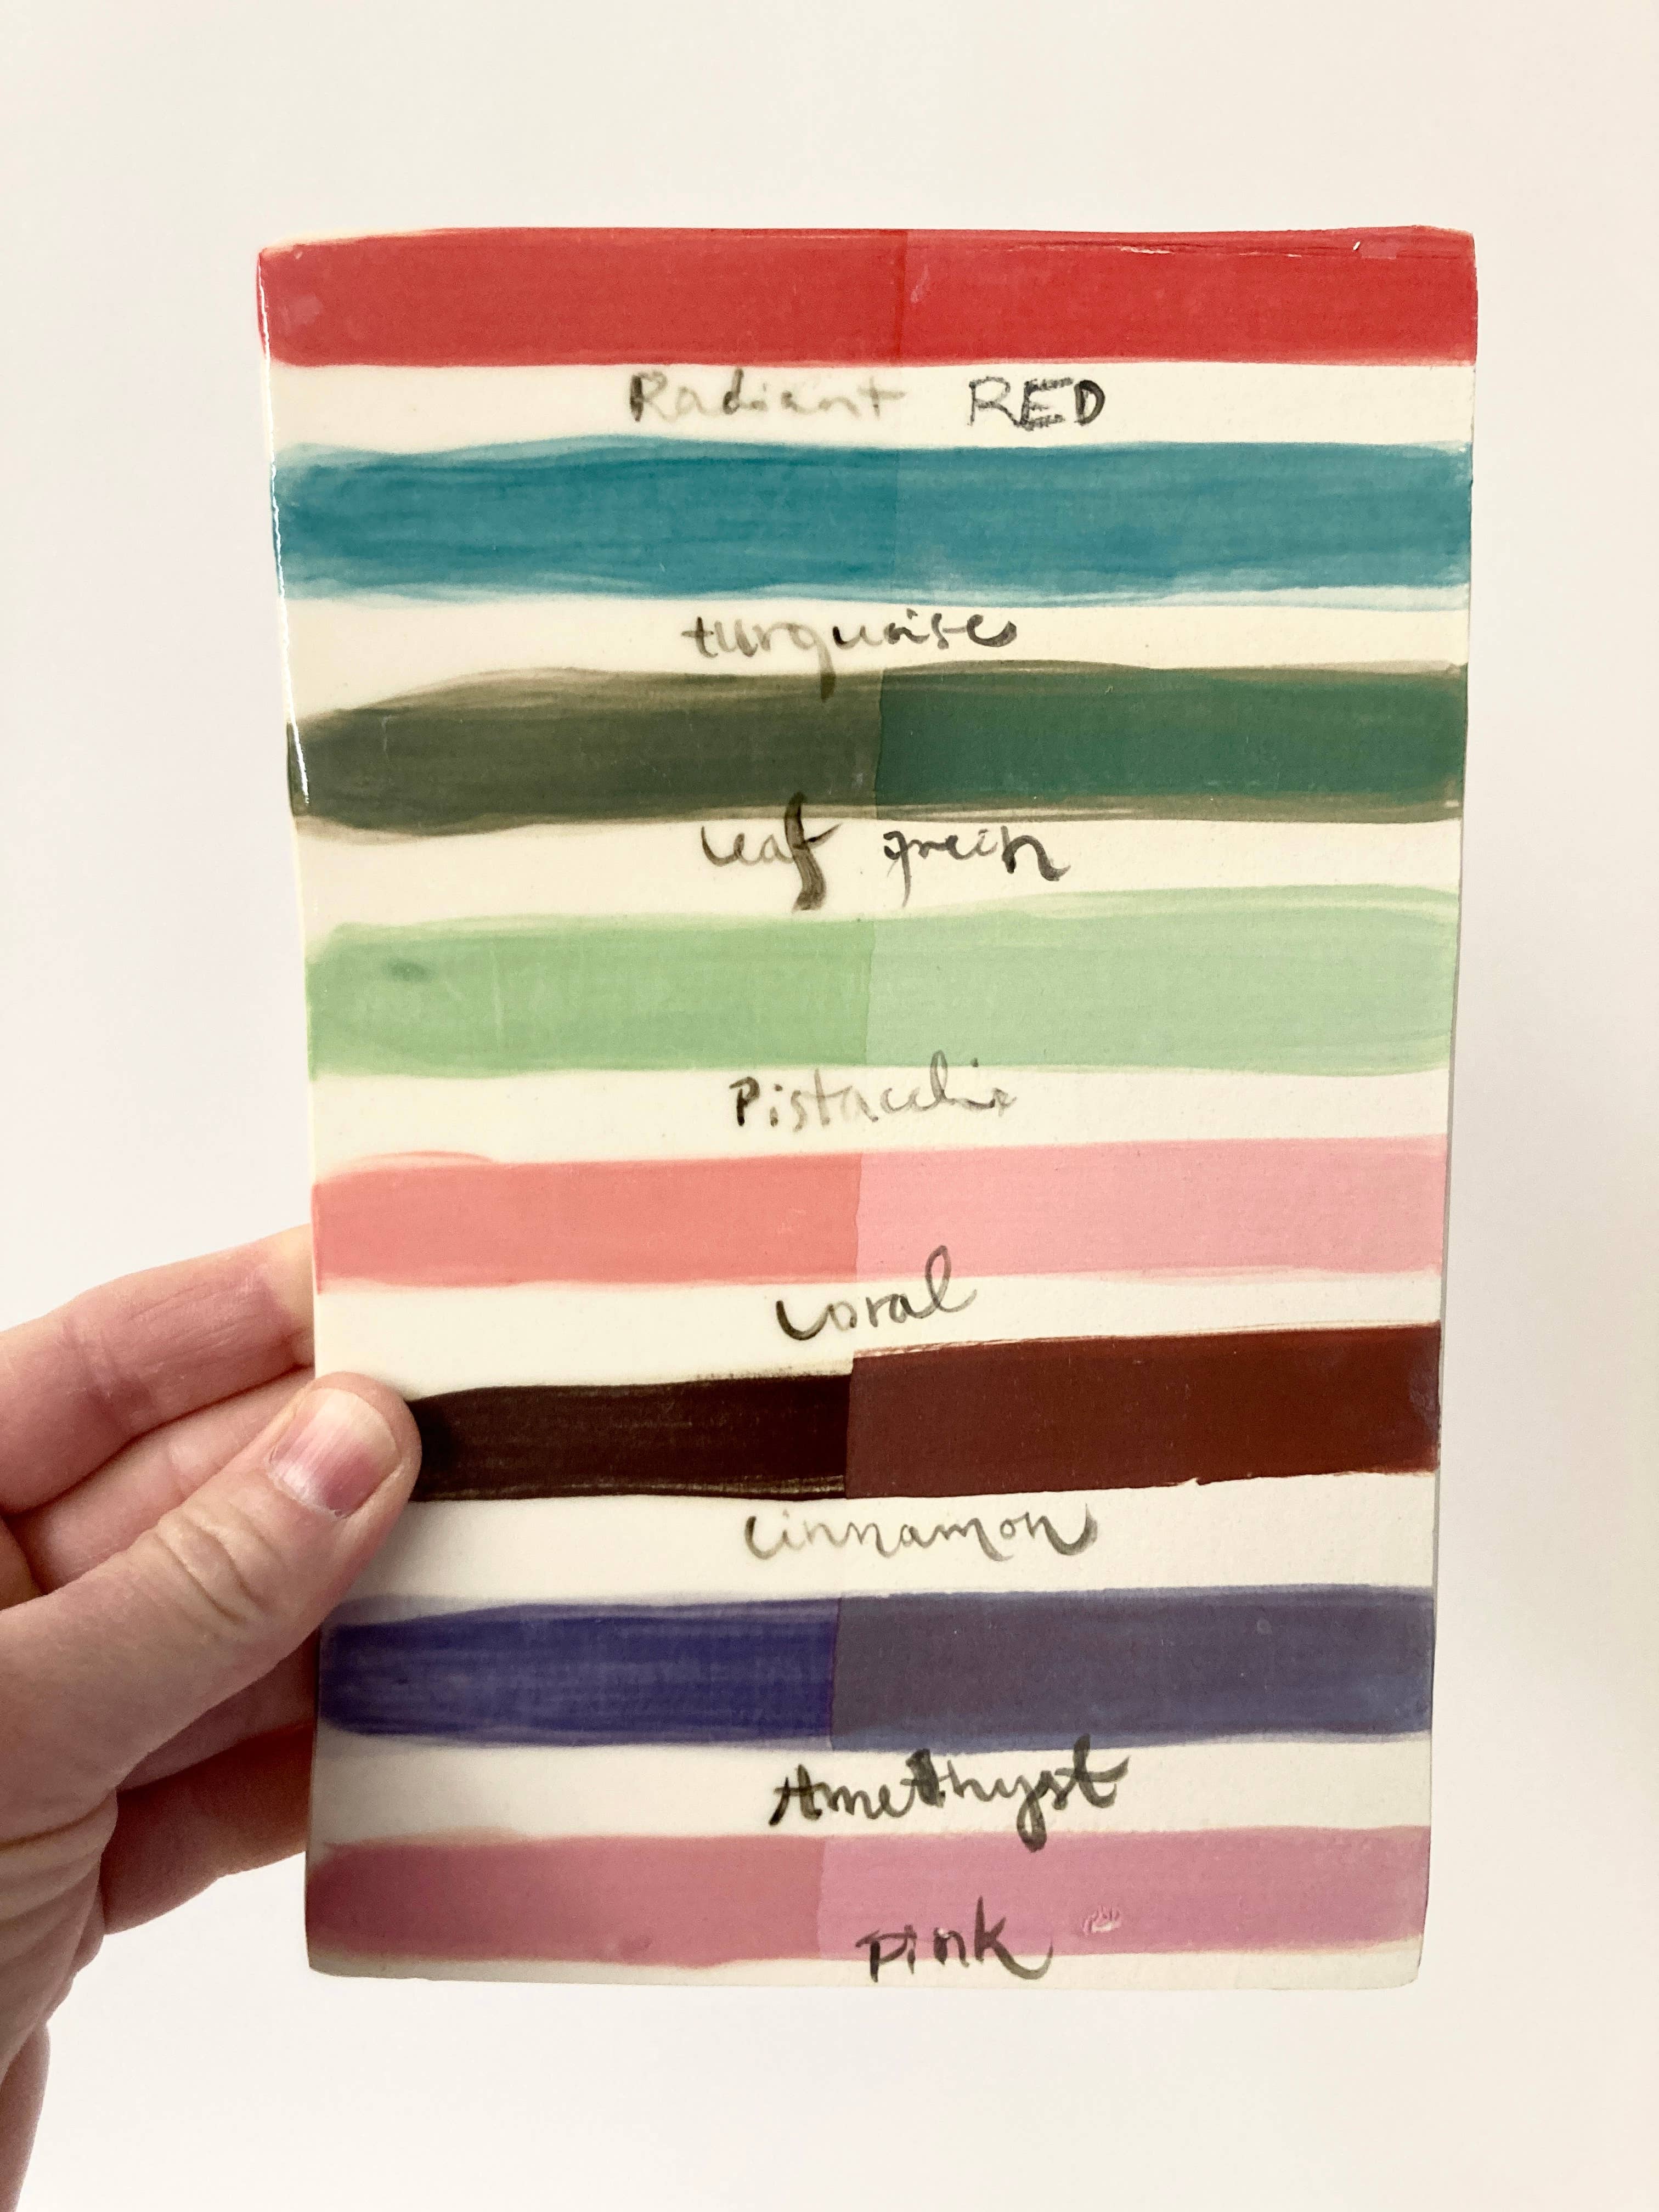 Radiant RED
turquoise
leaf green
Pistacchio
Coral
Cinnamon
Amethyst
Pink